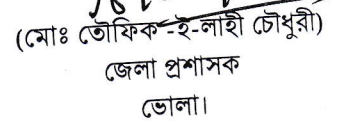 (মোঃ তৌফিক-ই-লাহী চৌধুরী)
জেলা প্রশাসক
ভোলা।